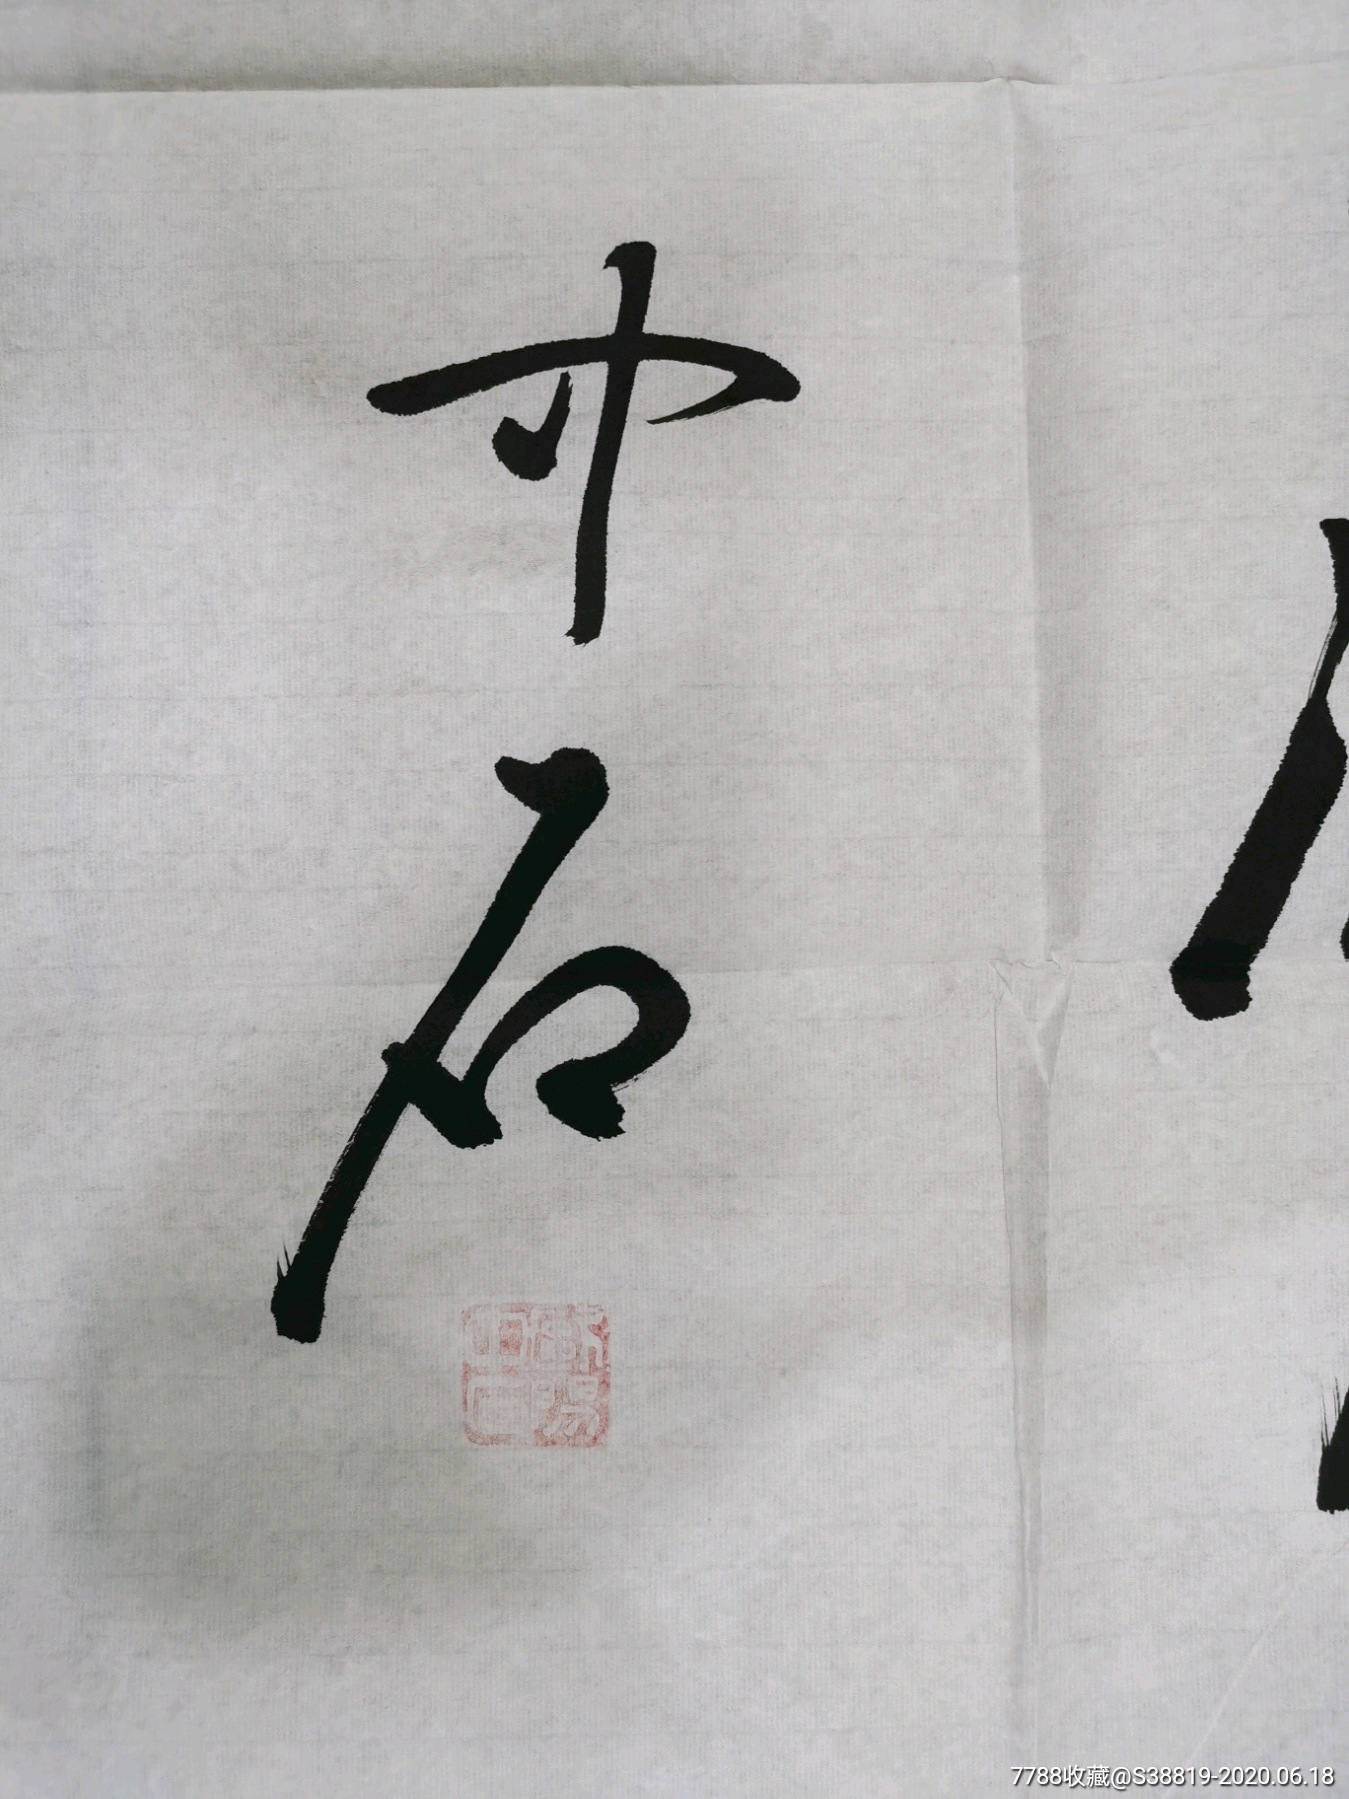 中石
歐陽
中石
7788收藏@S38819-2020.06.18